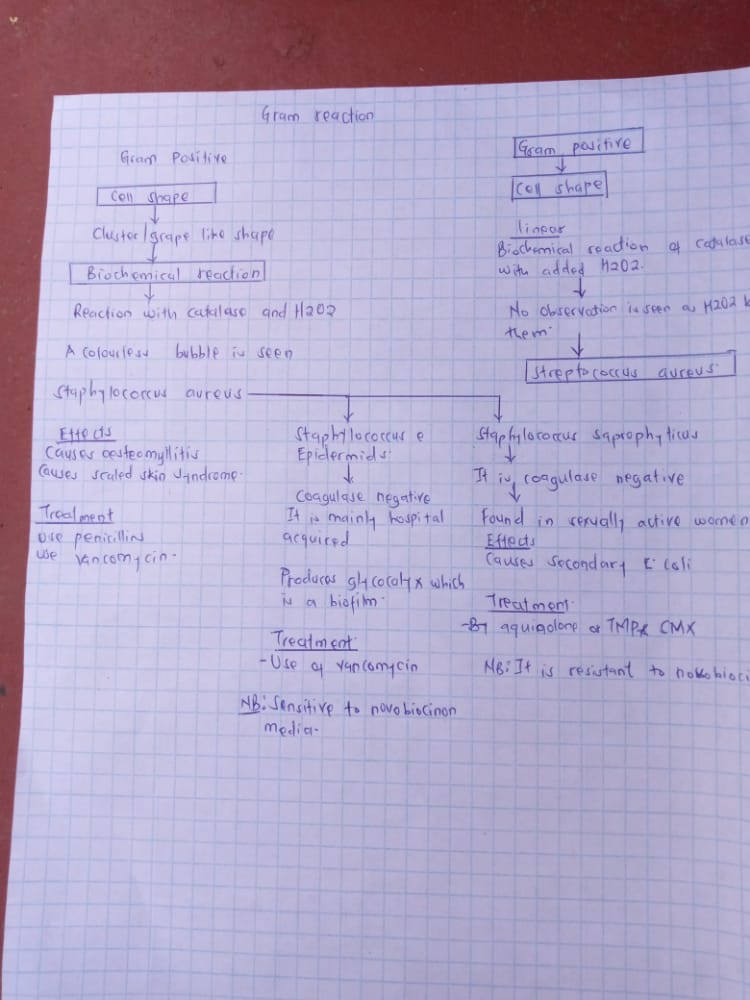 Gram reaction
Gram Positive
Cell shape
Cluster/grape like shape
Biochemical reaction
Reaction with catalase and H2O2
A colourless bubble is seen
Staphylococcus aureus
Effects
Causes oesteomyllitis
Causes scaled skin syndrome.
Treatment
Use penicillin
Use vancomycin.
Staphylococcus e
Epidermids.
Coagulase negative
It is mainly hospital
acquired
Produces glycocalyx which
is a biofilm.
Treatment.
-Use of vancomycin
NB: Sensitive to novobiocinon
media.
Gram positive
Cell shape
linear
Biochemical reaction of catalase
with added H2O2.
No observation is seen as H2O2
them.
Streptococcus aureus.
Staphylococcus saprophyticus
It is coagulase negative
Found in sexually active women
Effects
Causes secondary E coli
Treatment.
-By TMP CMX
NB: It is resistant to